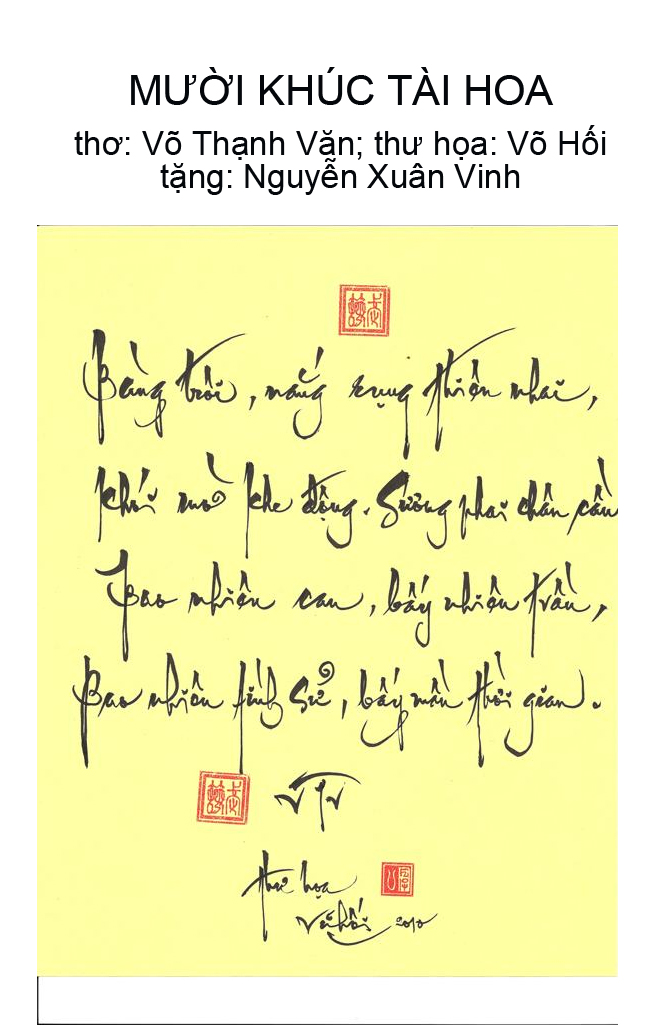 MƯỜI KHÚC TÀI HOA
thơ: Võ Thạnh Văn; thư họa: Võ Hối
tặng: Nguyễn Xuân Vinh
Bàng trôi, nắng rụng thiên nhai,
Khói mờ khe động. Sương phai chân cầu
Bao nhiên can, bấy nhiên trần,
Bao nhiên tính sử, bấy mần thời gian.
VTV
thư họa
Võ Hối 2010